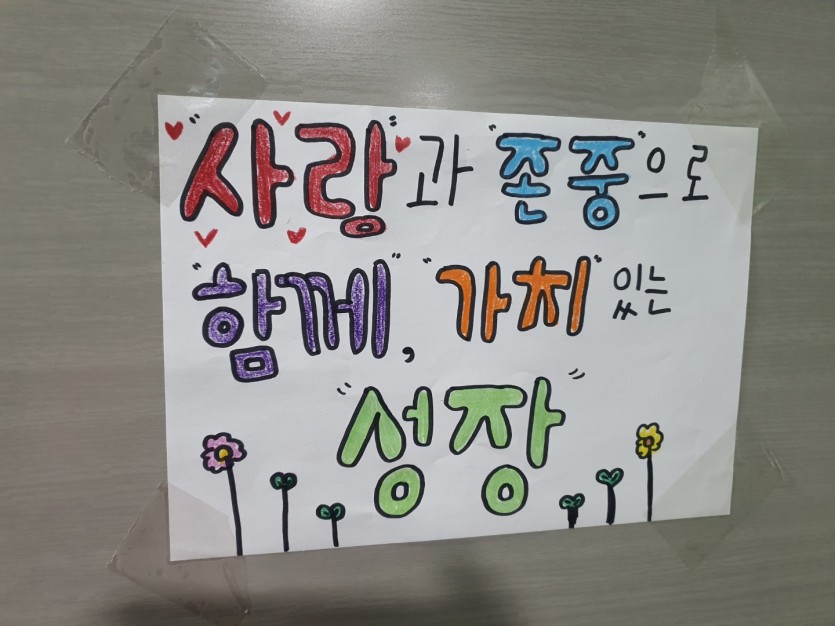 "사랑"과 "존중"으로
"함께", "가치" 있는
"성장"